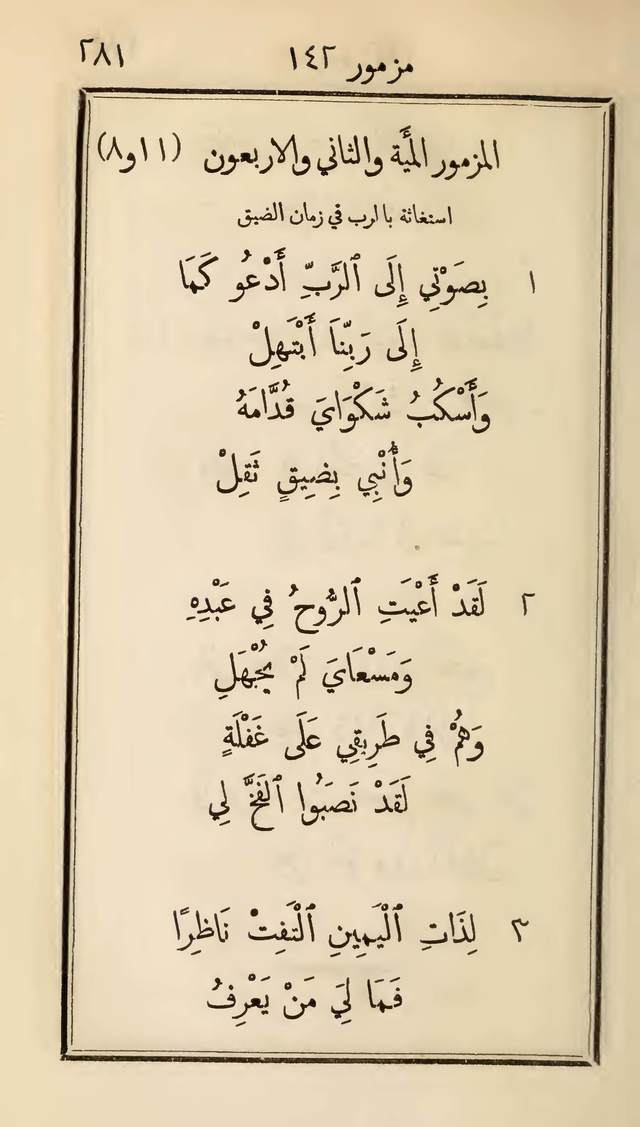 مزمور ١٤٢ ٢٨١
المزمور المِيَّة والثاني والاربعون (١١و٨)
استغاثة بالرب في زمان الضيق
١ بِصَوْتِي إِلَى ٱلرَّبِّ أَدْعُو كَمَا
إِلَى رَبِّنَا أَبْتَهِلْ
وَأَسْكُبُ شَكْوَايَ قُدَّامَهُ
وَأُنْبِي بِضِيقٍ ثَقِلْ
٢ لَقَدْ أَعْيَتِ ٱلرُّوحُ فِي عَبْدِهِ
وَمَسْعَايَ لَمْ يُجْهَلِ
وَهُمْ فِي طَرِيقِي عَلَى غَفْلَةٍ
لَقَدْ نَصَبُوا ٱلفَخَّ لِي
٣ لِذَاتِ ٱلْيَمِينِ ٱلْتَفِتْ نَاظِرًا
فَمَا لِيَ مَنْ يَعْرِفُ